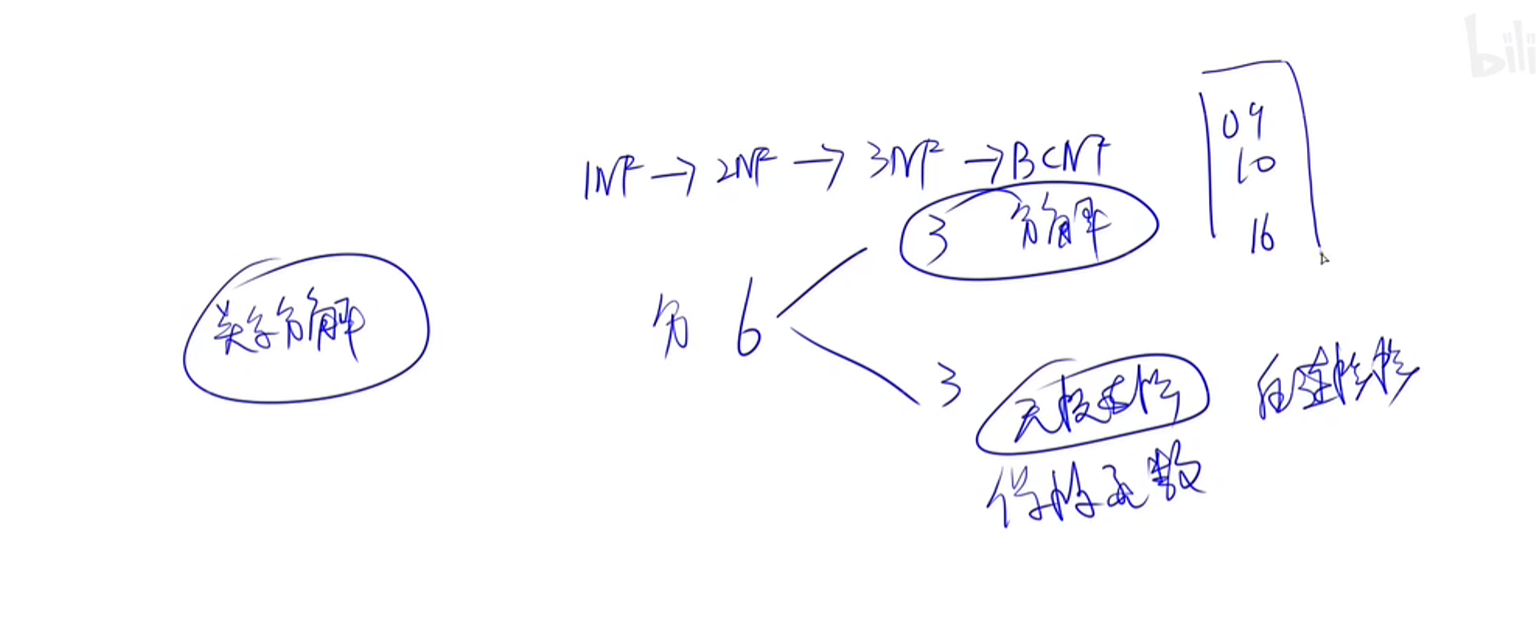 bili
1NF → 2NF → 3NF → BCNF
09
10
16
3 分解
关系分解
分 6
3 无损连接
保持函数